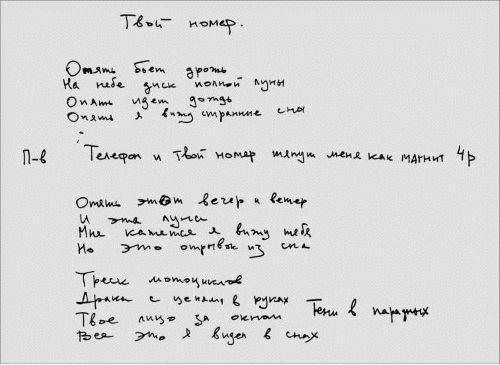 Твой номер.
Опять бьет дрожь
На небе диск полной луны
Опять идет дождь
Опять я вижу странные сны
П-в Телефон и твой номер тянут меня как магнит 4р
Опять этот вечер и ветер
И эта луна
Мне кажется я вижу тебя
Но это отрывок из сна
Треск мотоциклов
Драка с цепями в руках
Твое лицо за окном Тени в парадных
Все это я видел в снах